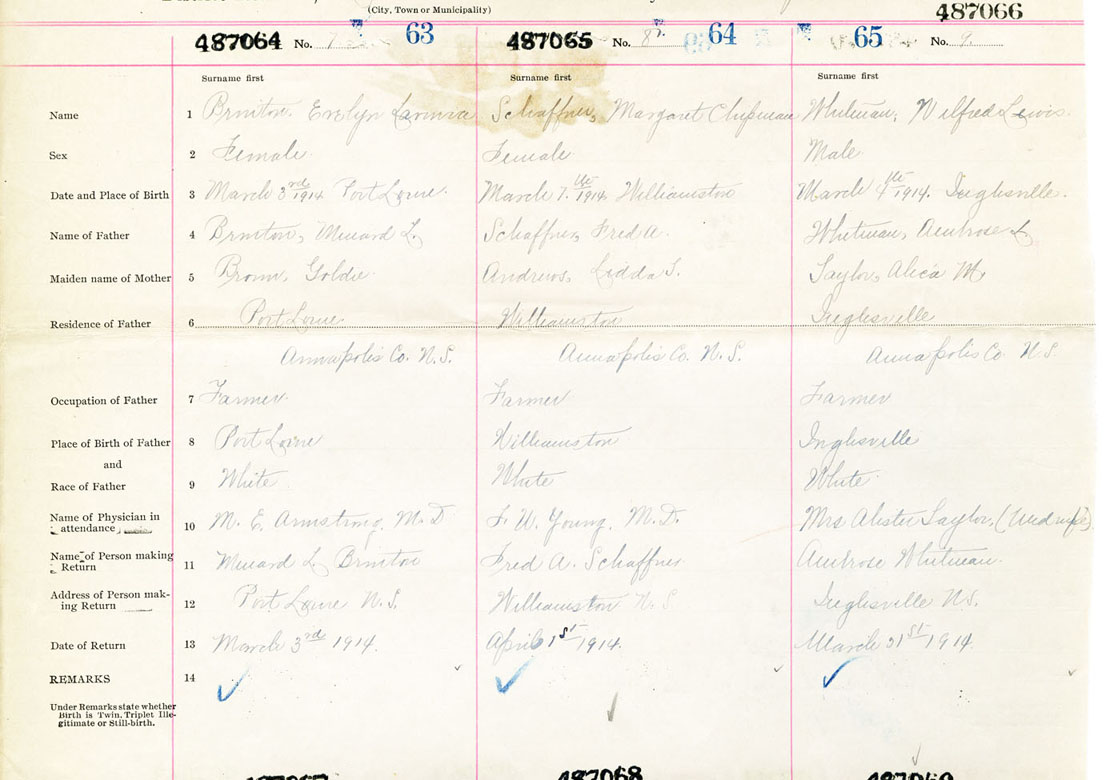 (City, Town or Municipality)
487066
487064 No. 7 63 487065 No. 8 64 65 No. 9
Surname first Surname first Surname first
Name 1 Brinton, Evelyn Schaffner, Margaret Chipman Whitman, Wilfred Lewis
Sex 2 Female Female Male
Date and Place of Birth 3 March 3rd 1914 Port Lorne March 7th 1914 Williamston March 1914. Inglisville.
Name of Father 4 Brinton, Minard L. Schaffner, Fred A. Whitman, Ambrose L
Maiden name of Mother 5 Brown, Goldie Andrews, Lidda S. Taylor, Alica M.
Residence of Father 6 Port Lorne Williamston Inglisville
Annapolis Co. N.S. Annapolis Co. N.S. Annapolis Co N.S.
Occupation of Father 7 Farmer Farmer Farmer
Place of Birth of Father 8 Port Lorne Williamston Inglisville
and
Race of Father 9 White White White
Name of Physician in attendance 10 M. E. Armstrong, M.D. F. W. Young, M.D. Mrs Taylor, (Midwife)
Name of Person making Return 11 Minard L Brinton Fred A. Schaffner Ambrose Whitman.
Address of Person making Return 12 Port Lorne N.S. Williamston N.S. Inglisville N.S.
Date of Return 13 March 3rd 1914. April 1st 1914. March 31st 1914
REMARKS 14
Under Remarks state whether
Birth is Twin, Triplet Ille-
gitimate or Still-birth.
487068